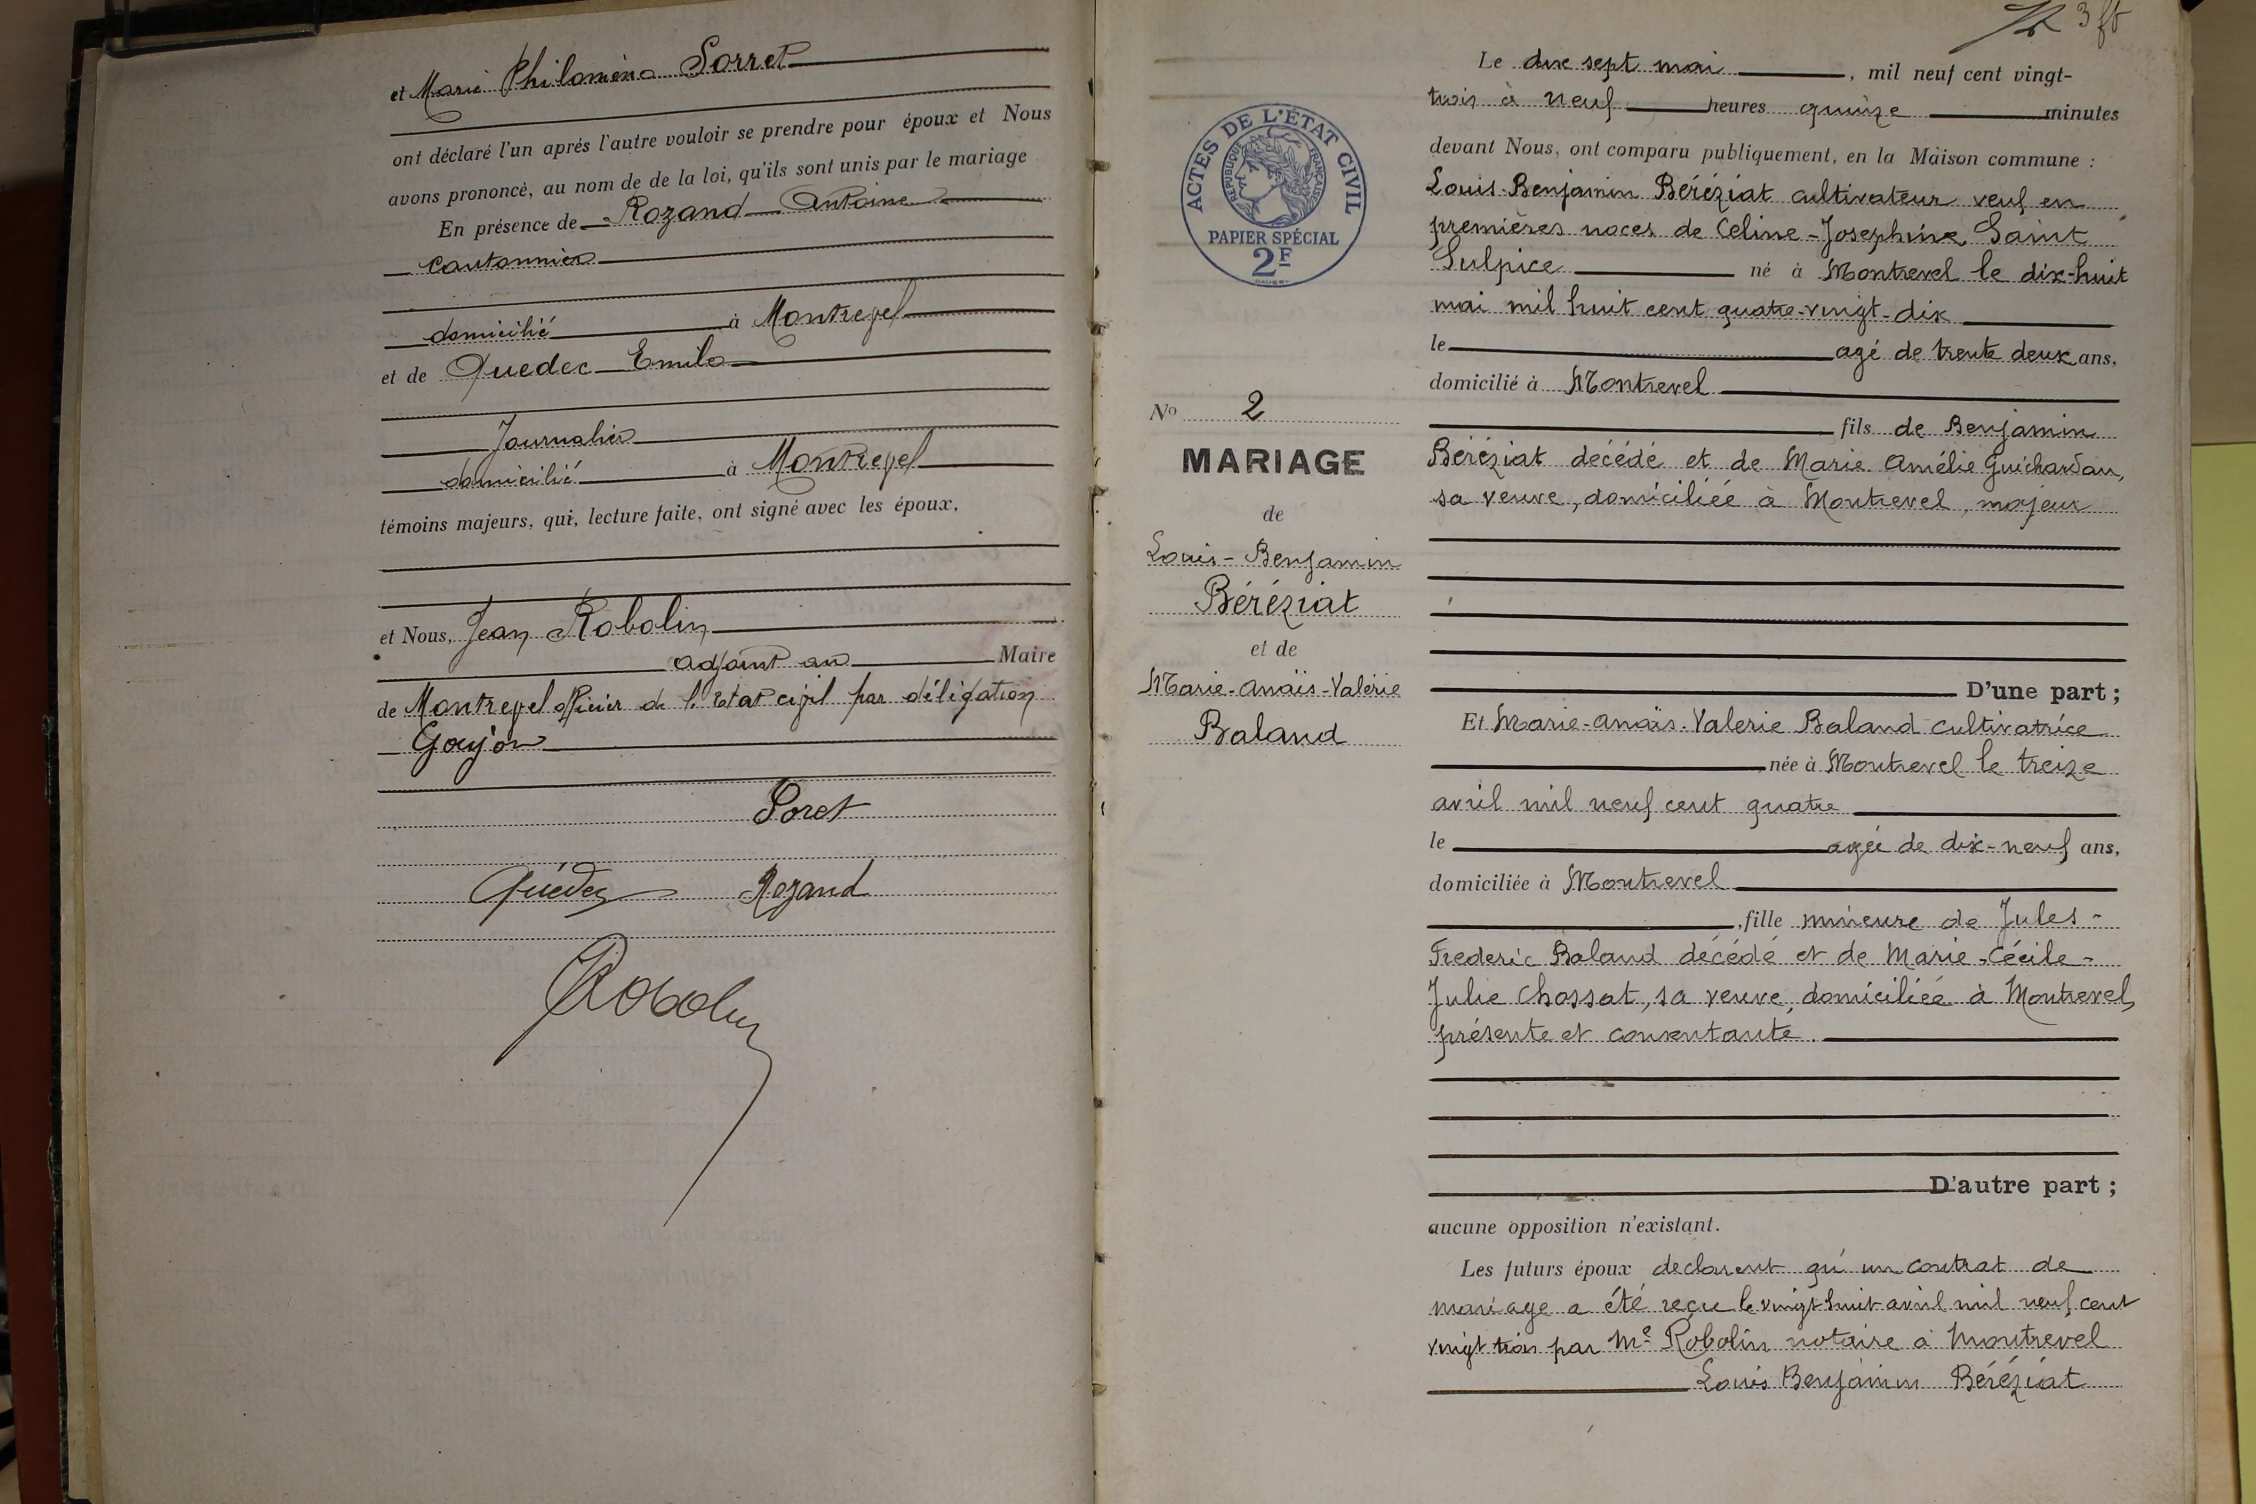 et Marie Philomène Sorret
ont déclaré l'un aprés l'autre vouloir se prendre pour époux et Nous
avons prononcé, au nom de de la loi, qu'ils sont unis par le mariage
En présence de Rozand Antoine
cantonnier
domicilié à Montrevel
et de Quedec Emile
Journalier
domicilié à Montrevel
témoins majeurs, qui, lecture faite, ont signé avec les époux,
et Nous, Jean Robolin
adjoint au Maire
de Montrevel officier de l'Etat civil par délégation
Goyon
Soret
Quédec Rozand
Robolin
3 ft
Le dix sept mai, mil neuf cent vingt-
trois à neuf heures quinze minutes
devant Nous, ont comparu publiquement, en la Maison commune :
Louis-Benjamin Béréziat cultivateur veuf en
premières noces de Celine-Josephine Saint
Sulpice né à Montrevel le dix-huit
mai mil huit cent quatre-vingt-dix
le agé de trente deux ans,
domicilié à Montrevel
fils de Benjamin
Béréziat décédé et de Marie Amélie Guichardan,
sa veuve, domiciliée à Montrevel, majeur
D'une part ;
Et Marie-Anaïs-Valerie Baland cultivatrice
née à Montrevel le treize
avril mil neuf cent quatre
le agée de dix-neuf ans,
domiciliée à Montrevel
, fille mineure de Jules-
Frederic Baland décédé et de Marie-Cécile-
Julie Chossat, sa veuve, domiciliée à Montrevel,
présente et consentante.
D'autre part ;
aucune opposition n'existant.
Les futurs époux declarent qu'un contrat de
mariage a été reçu le vingt huit avril mil neuf cent
vingt trois par Me Robolin notaire à Montrevel
Louis Benjamin Béréziat
ACTES DE L'ÉTAT CIVIL
RÉPUBLIQUE FRANÇAISE
PAPIER SPÉCIAL
2F
No 2
MARIAGE
de
Louis-Benjamin
Béréziat
et de
Marie-Anaïs-Valérie
Baland